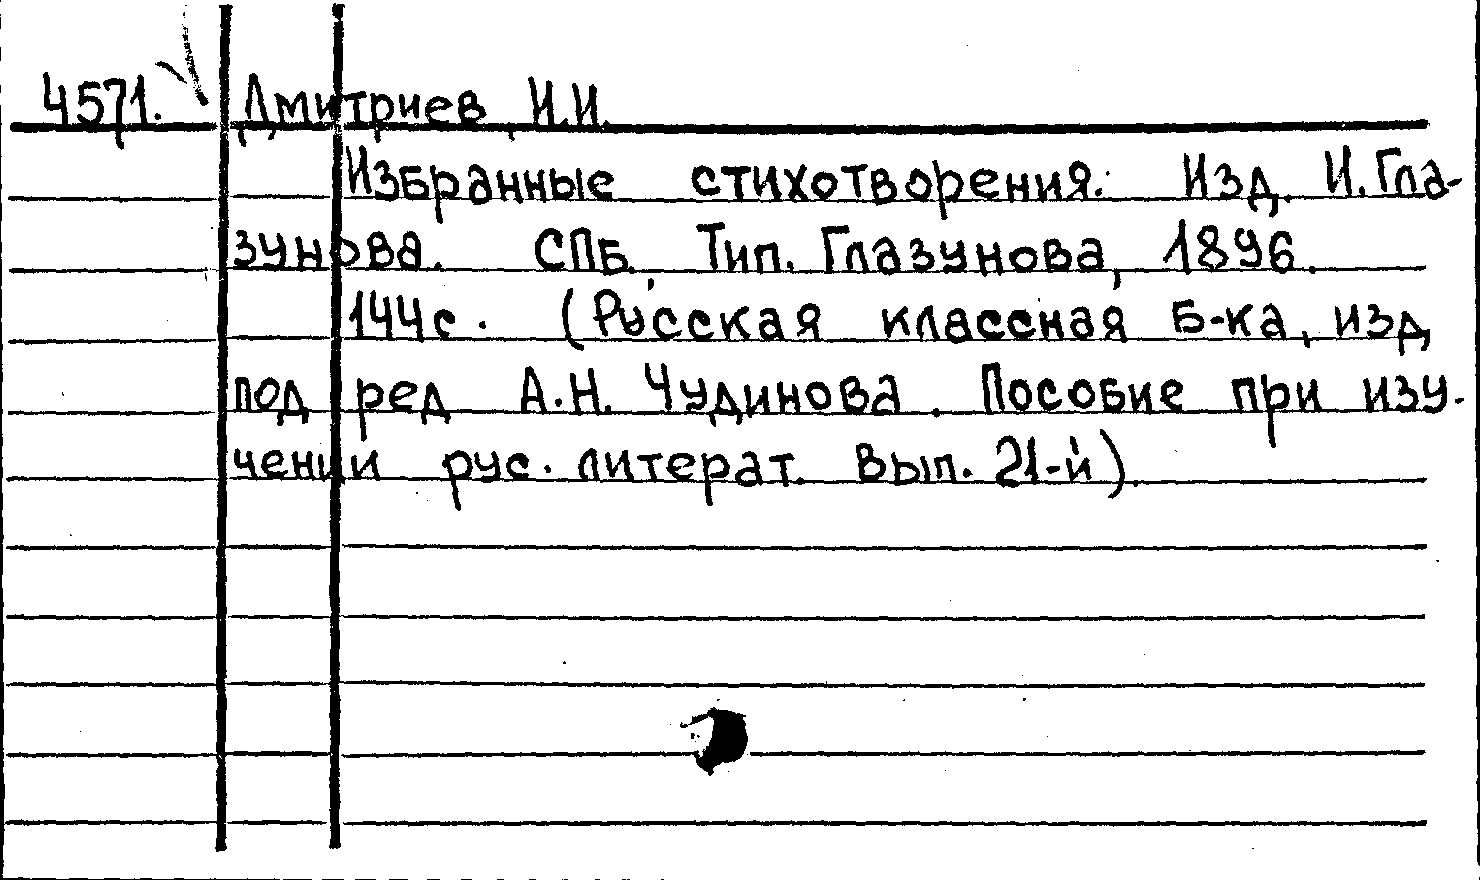 4571. Дмитриев, И.И.
Избранные стихотворения. Изд. И. Гла-
зунова. СПБ, Тип. Глазунова, 1896.
144с. (Русская классная Б-ка, изд.
под ред А.Н. Чудинова. Пособие при изу-
чении рус. литерат. Вып. 21-й).